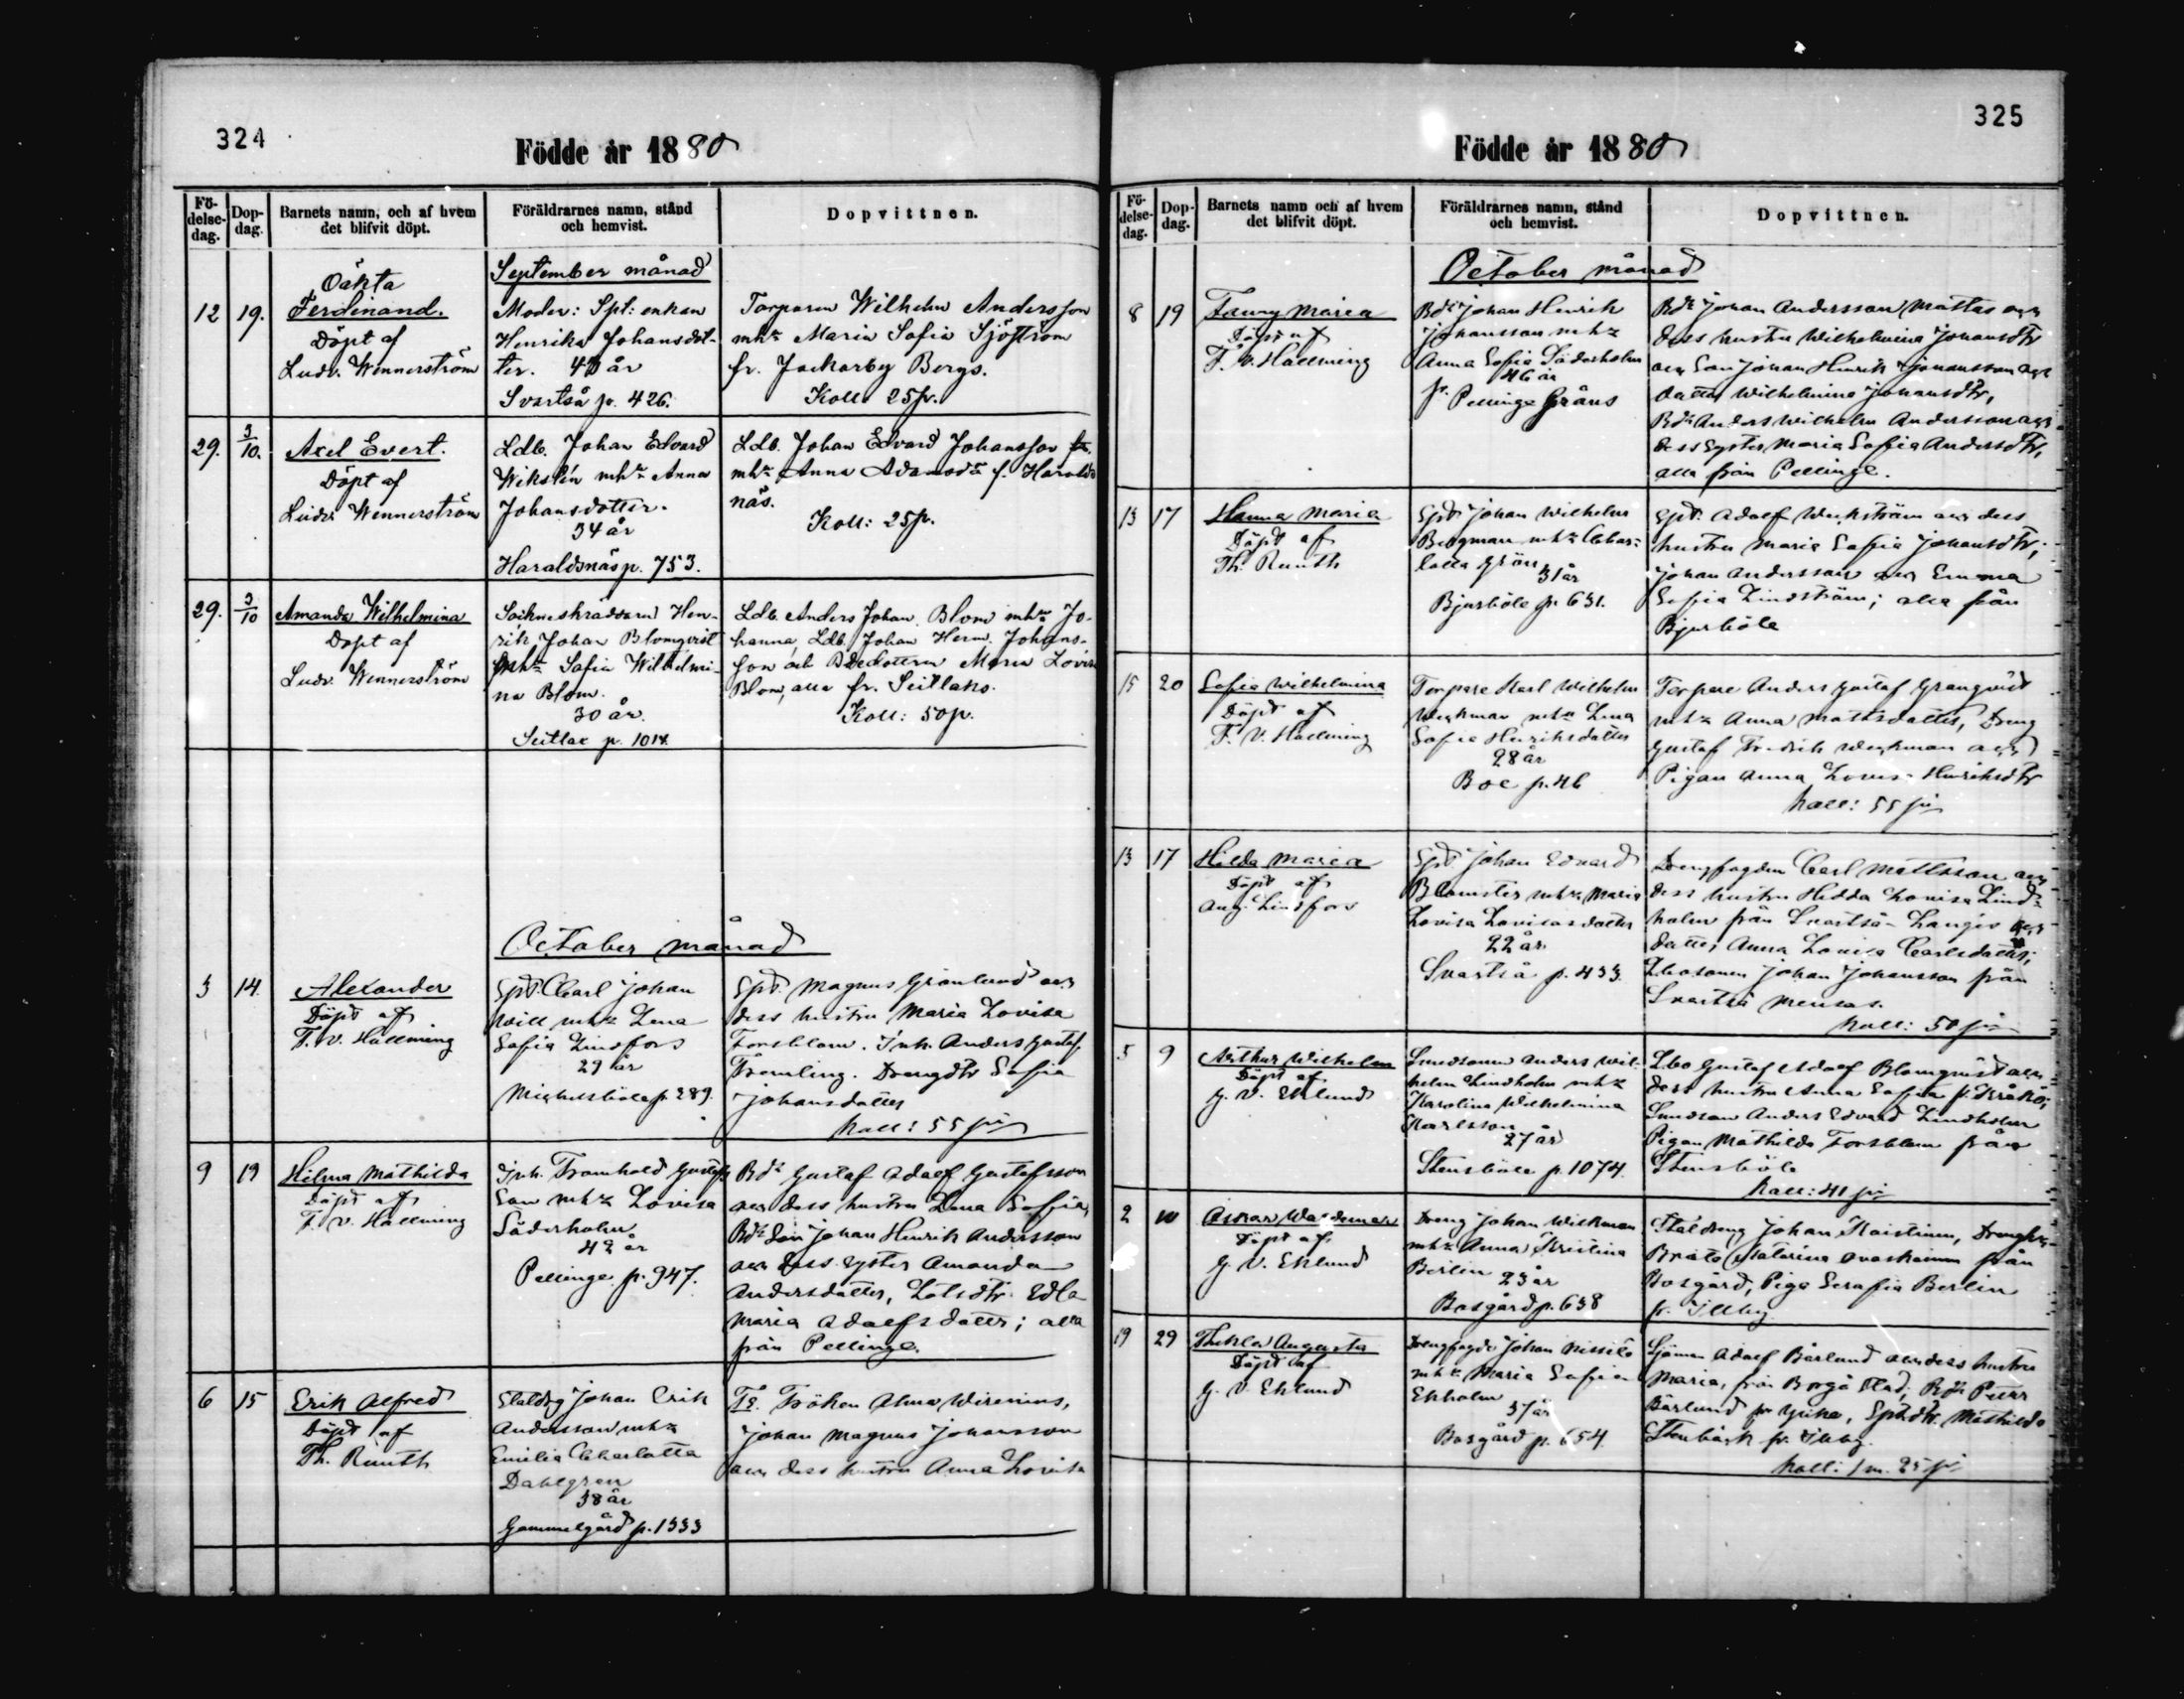 324
Födde år 1880
Fö-
delse-
dag.
Dop-
dag.
Barnets namn, och af hvem
det blifvit döpt.
Föräldrarnes namn, stånd
och hemvist.
Dopvittnen.
September månad
12 19.
Oäkta
Ferdinand.
Döpt af
Ludv. Wennerström
Moder: Spt: enkan
Henrika Johansdot-
ter. 43 år
Svartså p. 426.
Torparen Wilhelm Andersson
mhr Maria Sofia Sjöström
fr. Jackarby Bergs.
Koll 25 p.
29. 3/10.
Axel Evert.
Döpt af
Ludv. Wennerström
Ldb. Johan Edvard
Wikslén mhr Anna
Johansdotter.
34 år
Haraldsnäs p. 753.
Ldb. Johan Edvard Johansson
mhr Anna Adamsdr f. Haralds
näs.
Koll: 25 p.
29. 3/10
Amanda Wilhelmina
Döpt af
Ludv. Wennerström
Sockneskräddaren Hen-
rik Johan Blomqvist
mhr Sofia Wilhelmi-
na Blom.
30 år.
Seitlax p. 1014.
Ldb. Anders Johan Blom mhr Jo-
hanna, Ldb. Johan Herm. Johans-
son och Bdedottern Maria Lovisa
Blom, alla fr. Seitlaks.
Koll: 50 p.
October månad
3 14.
Alexander
Döpt af
F. V. Hallming
Spt. Carl Johan
mhr Lena
Sofia Lindfors
29 år
Mickelsböle p. 289.
Spt. Magnus Grönlund och
dess hustru Maria Lovisa
Forsblom. Inh. Anders Gustaf
Främling. Drengdtr Sofia
Johansdotter
Koll: 55 p
9 19
Hilma Mathilda
Döpt af
F. V. Hallming
Inh. Tromhold Gustafs
Son mhr Lovisa
Söderholm
42 år
Pellinge p. 947.
Bdr Gustaf Adolf Gustafsson
och dess hustru Lena Sofia,
Bdr Son Johan Henrik Andersson
och dess syster Amanda
Andersdotter, Lotsdtr. Edla
Maria Adolfsdotter; alla
från Pellinge.
6 15
Erik Alfred
Döpt af
Th. Runth
Staldrg Johan Erik
Andersson mhr
Emilia Charlotta
Dahlgren
38 år
Gammelgård p. 1333
Fröken Alma Wirenius,
Johan Magnus Johansson
och dess hustru Anna Lovisa
325
Födde år 1880
Fö-
delse-
dag.
Dop-
dag.
Barnets namn och af hvem
det blifvit döpt.
Föräldrarnes namn, stånd
och hemvist.
Dopvittnen.
October månad
8 19
Fanny Maria
Döpt af
F. V. Hallming
Bdr Johan Henrik
Johansson mhr
Anna Sofia Söderholm
46 år
fr. Pellinge Gräns
Bdr Johan Andersson Mattas och
dess hustru Wilhelmina Johansdtr
och Son Johan Henrik Johansson och
dotter Wilhelmina Johansdtr,
Bdr Anders Wilhelm Andersson och
dess syster Maria Sofia Andersdtr,
alla från Pellinge.
13 17
Hanna Maria
Döpt af
Th. Runth
Spt Johan Wilhelm
Bergman mhr Char-
lotta Grön
31 år
Bjurböle p. 631.
Spt. Adolf Weckström och dess
hustru Maria Sofia Johansdtr;
Johan Andersson och Emma
Sofia Lindström; alla från
Bjurböle
15 20
Sofia Wilhelmina
Döpt af
F. V. Hallming
Torpare Karl Wilhelm
Weckman mhr Lena
Sofia Henriksdotter
28 år
Boe p. 46
Torpare Anders Gustaf Granqvist
mhr Anna Mattsdotter, Dreng
Gustaf Fredrik Weckman och
Pigan Anna Lovisa Henriksdtr
Koll: 55 p
13 17
Hilda Maria
Döpt af
Aug. Lindfors
Spt Johan Edvard
Blomster mhr Maria
Lovisa Lovisasdotter
22 år
Svartså p. 433.
Drengfogden Carl Mattsson och
dess hustru Hedda Lovisa Lind-
holm från Svartså- Langis och
dotter Anna Lovisa Carlsdotter;
Johan Johansson från
Svartså Mensas.
Koll: 50 p
5 9
Arthur Wilhelm
Döpt af
G. V. Eklund
Smedsonen Anders Wil-
helm Lindholm mhr
Karolina Wilhelmina
Karlsson
27 år
Stensböle p. 1074.
Lbo Gustaf Adolf Blomqvist och
dess hustru Anna Sofia fr. Kråkö;
Smedson Anders Edvard Lindholm
Pigan Mathilda Forsblom från
Stensböle
Koll: 41 p
2 10
Oskar Waldemar
Döpt af
G. V. Eklund
Dreng Johan Wickman
mhr Anna Kristina
Berlin 23 år
Bosgård p. 638
Staldreng Johan Kaistinen,
Katarina från
Bosgård, Piga Serafia Berlin
fr. Illby
19 29
Thekla Augusta
Döpt af
G. V. Eklund
Drengfogde Johan Nissilä
mhr Maria Sofia
Ekholm
37 år
Bosgård p. 654.
Sjöman Adolf Bärlund och dess hustru
Maria, från Borgå Stad; Bdr Petter
Bärlund fr, Sptdtr. Mathilda
Stenbäck fr. Illby.
Koll: 1 m. 25 p